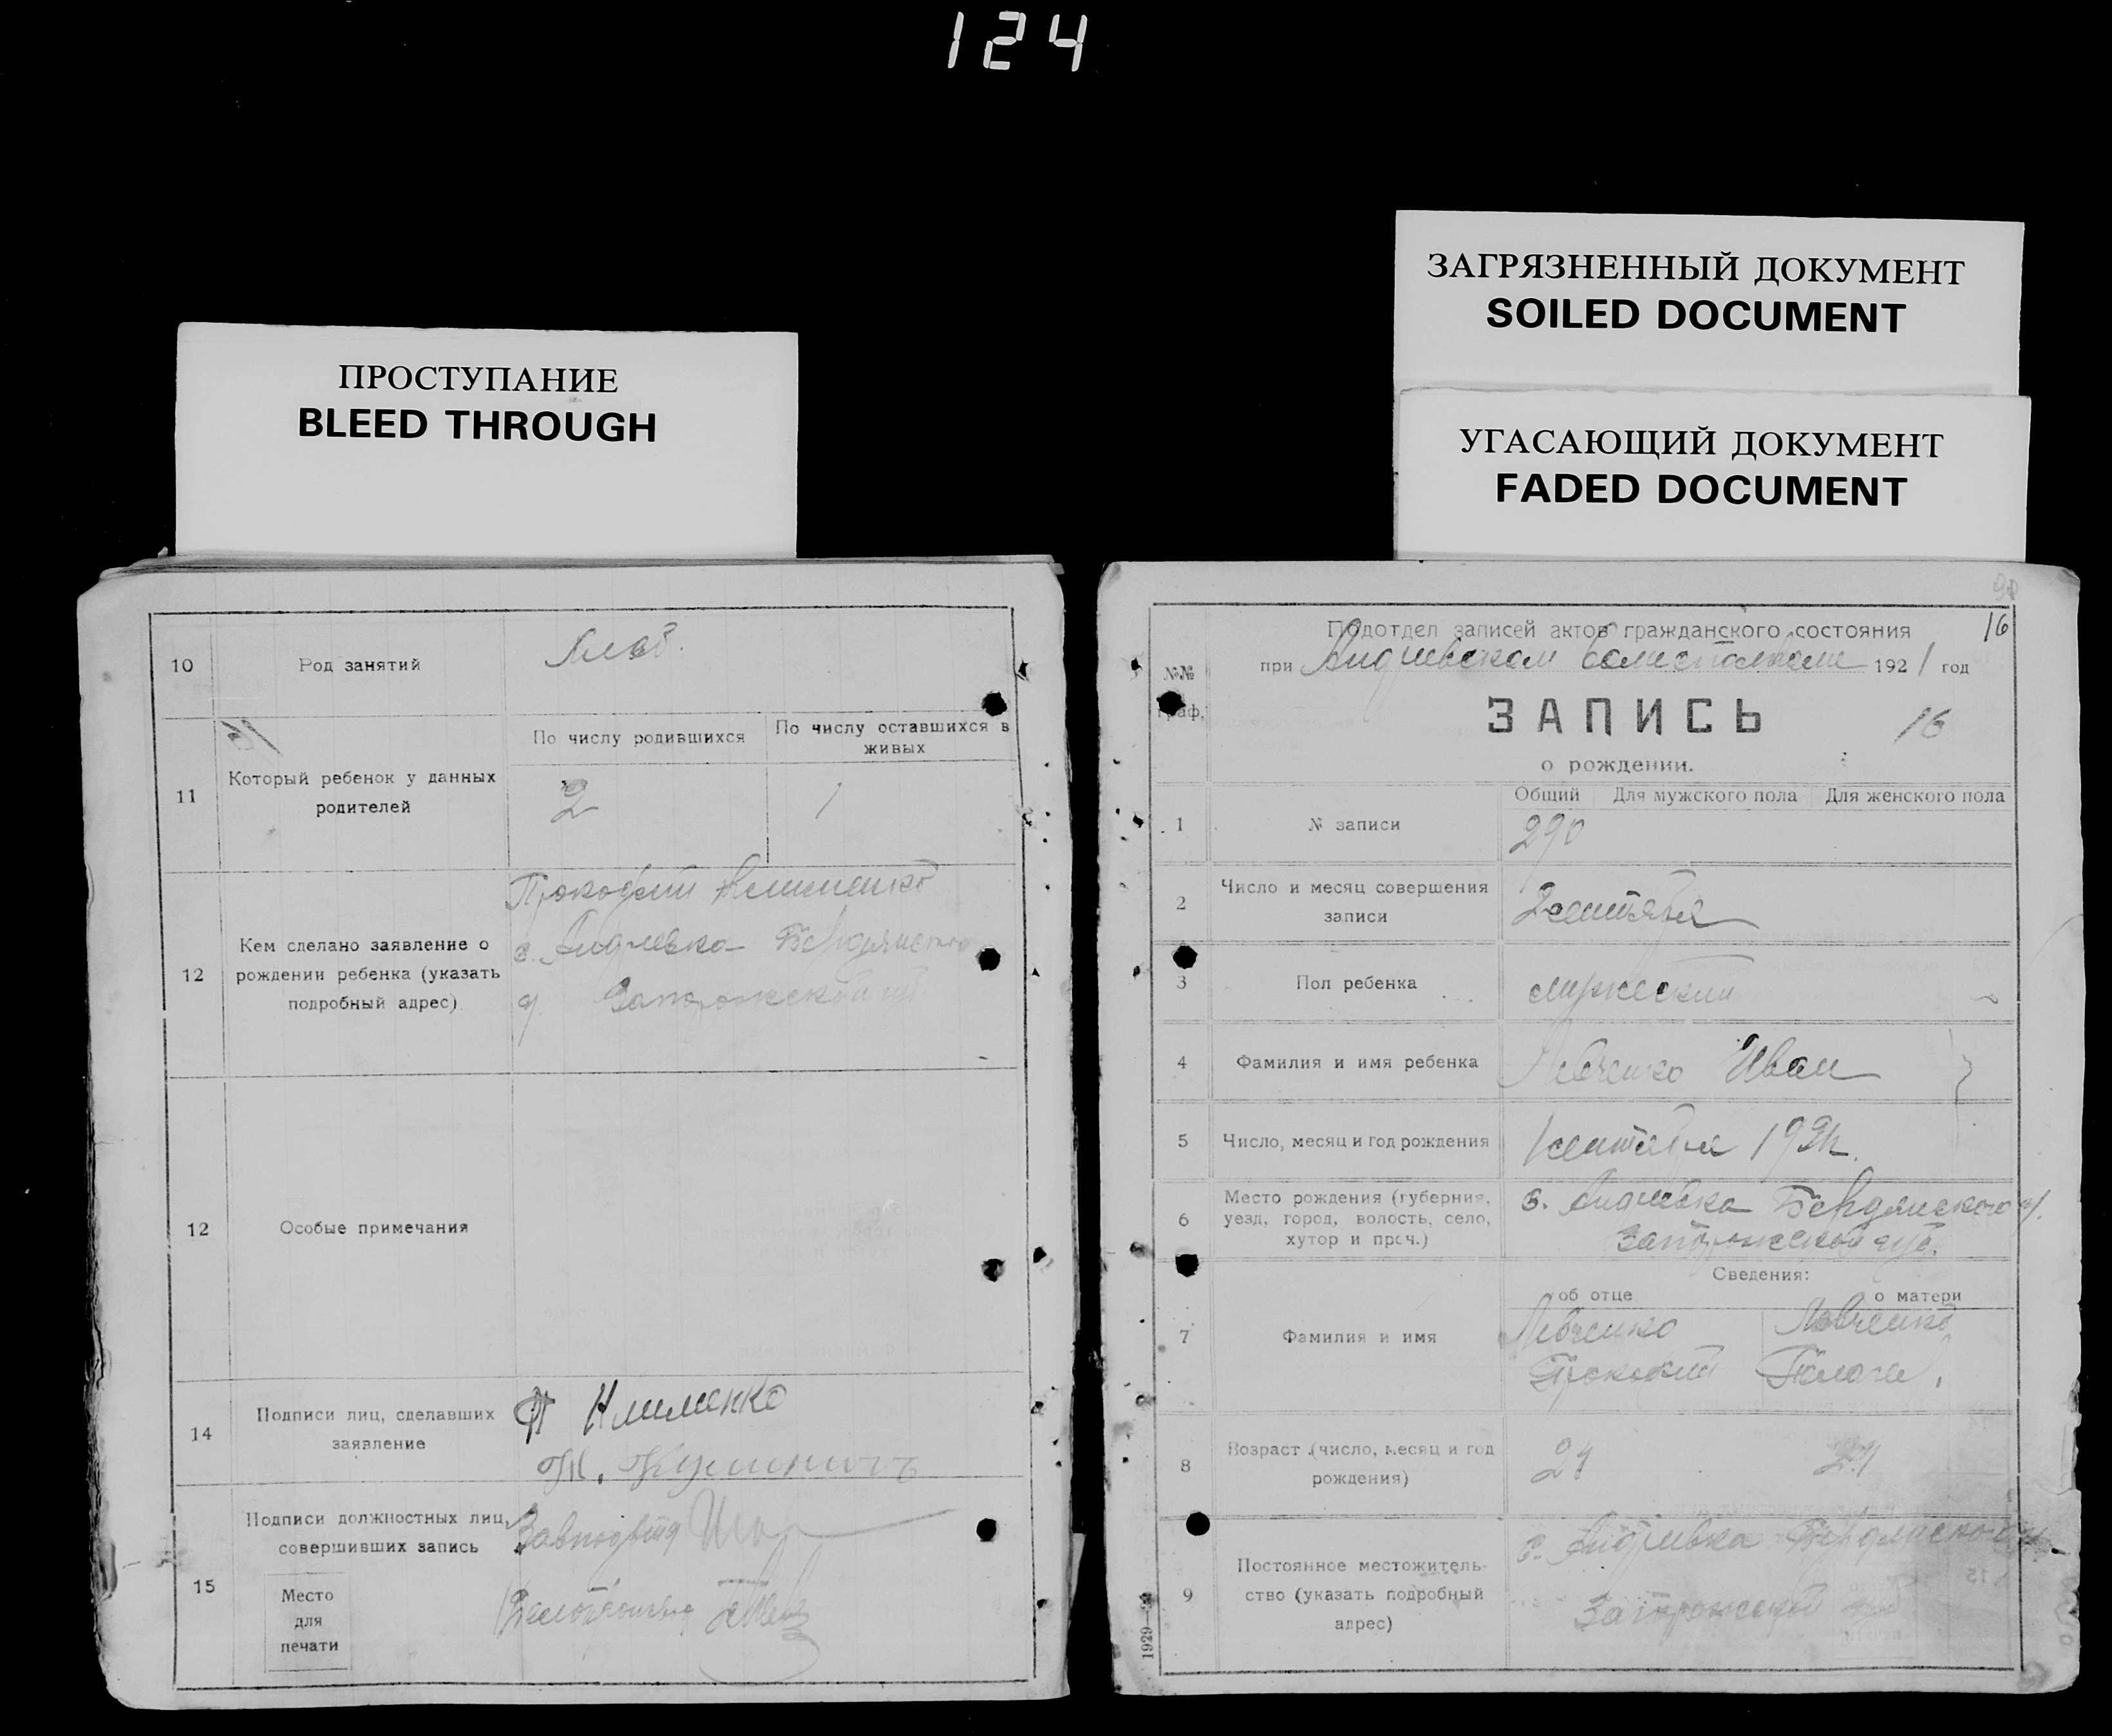 124
ПРОСТУПАНИЕ
BLEED THROUGH
ЗАГРЯЗНЕННЫЙ ДОКУМЕНТ
SOILED DOCUMENT
УГАСАЮЩИЙ ДОКУМЕНТ
FADED DOCUMENT
10 Род занятий
11 Который ребенок у данных родителей
По числу родившихся
По числу оставшихся в живых
2
1
12 Кем сделано заявление о рождении ребенка (указать подробный адрес)
Прокофий Клименко
с. Андреевка Бердянского
у. Запорожской губ.
12 Особые примечания
14 Подписи лиц, сделавших заявление
П Клименко
15 Подписи должностных лиц, совершивших запись
Завподотд
Место
для
печати
16
Подотдел записей актов гражданского состояния
при Андреевском волисполкоме 1921 год
№№ граф.
ЗАПИСЬ
16
о рождении.
Общий Для мужского пола Для женского пола
1 № записи
290
2 Число и месяц совершения записи
2 сентября
3 Пол ребенка
мужеский
4 Фамилия и имя ребенка
Левченко Иван
5 Число, месяц и год рождения
1 сентября 1921 г.
6 Место рождения (губерния, уезд, город, волость, село, хутор и проч.)
с. Андреевка Бердянского у.
Запорожской губ.
Сведения:
об отце о матери
7 Фамилия и имя
Левченко Левченко
Прокофий Пелагея
8 Возраст (число, месяц и год рождения)
9 Постоянное местожительство (указать подробный адрес)
с. Андреевка Бердянского у.
Запорожской губ
1929